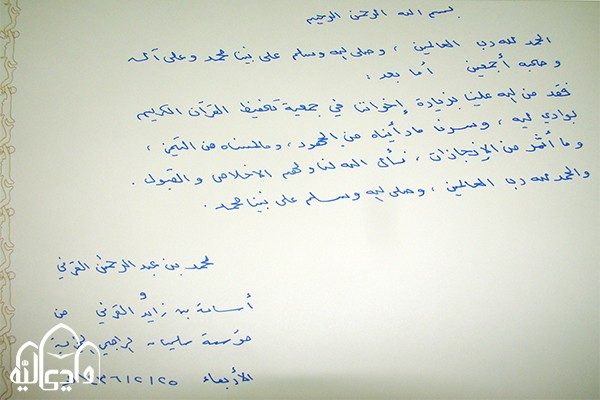 بسم الله الرحمن الرحيم
الحمد لله رب العالمين ، وصلى الله وسلم على نبينا محمد وعلى آله
وصحبه أجمعين أما بعد :
فقد من الله علينا بزيارة إخواننا في جمعية تحفيظ القرآن الكريم
بوادي ليه ، وسرنا ما رأيناه من الجهود ، وما لمسناه من التميز ،
وما أثمر من الإنجازات ، نسأل الله لنا ولهم الاخلاص والقبول .
والحمد لله رب العالمين ، وصلى الله وسلم على نبينا محمد .
محمد بن عبد الرحمن القرني
و
أسامة بن زايد القرني من
مؤسسة سليمان الراجحي الخيرية
الأربعاء
وادي ليه